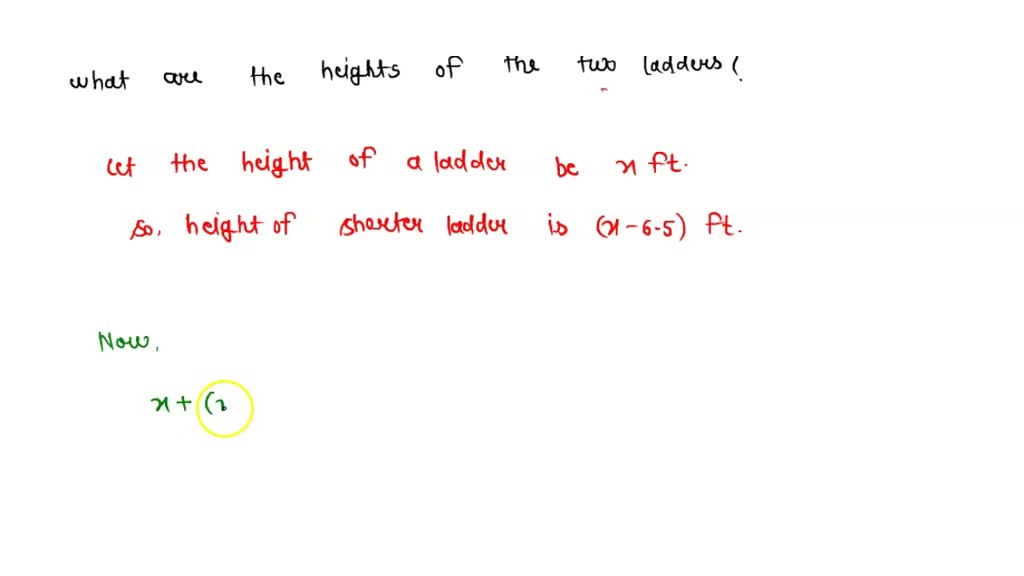 what are the heights of the two ladders (
Let the height of a ladder be x ft.
So, height of shorter ladder is (x-6.5) ft.
Now,
x + (